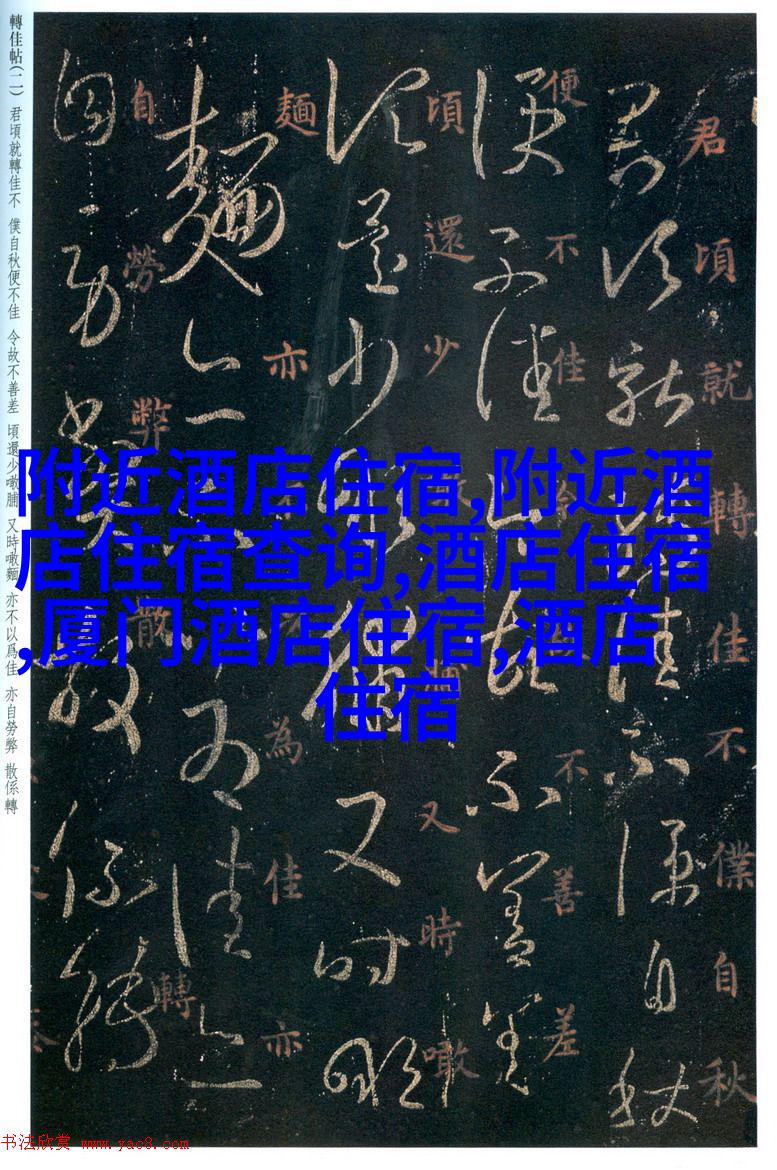 轉佳帖(二) 君頃就轉佳不 僕自秋便不佳 令故不善差 頃還少噉脯 又時噉麵 亦不以爲佳 亦自勞弊 散係轉
君頃就轉佳不僕自秋
便不佳今故不善差
頃還少噉脯又時噉
麵亦不以為佳亦
自勞弊散係轉
附近酒店住宿,附近酒
店住宿查询,酒店住宿
,厦门酒店住宿,酒店
住宿
书法欣赏 www.yac8.com